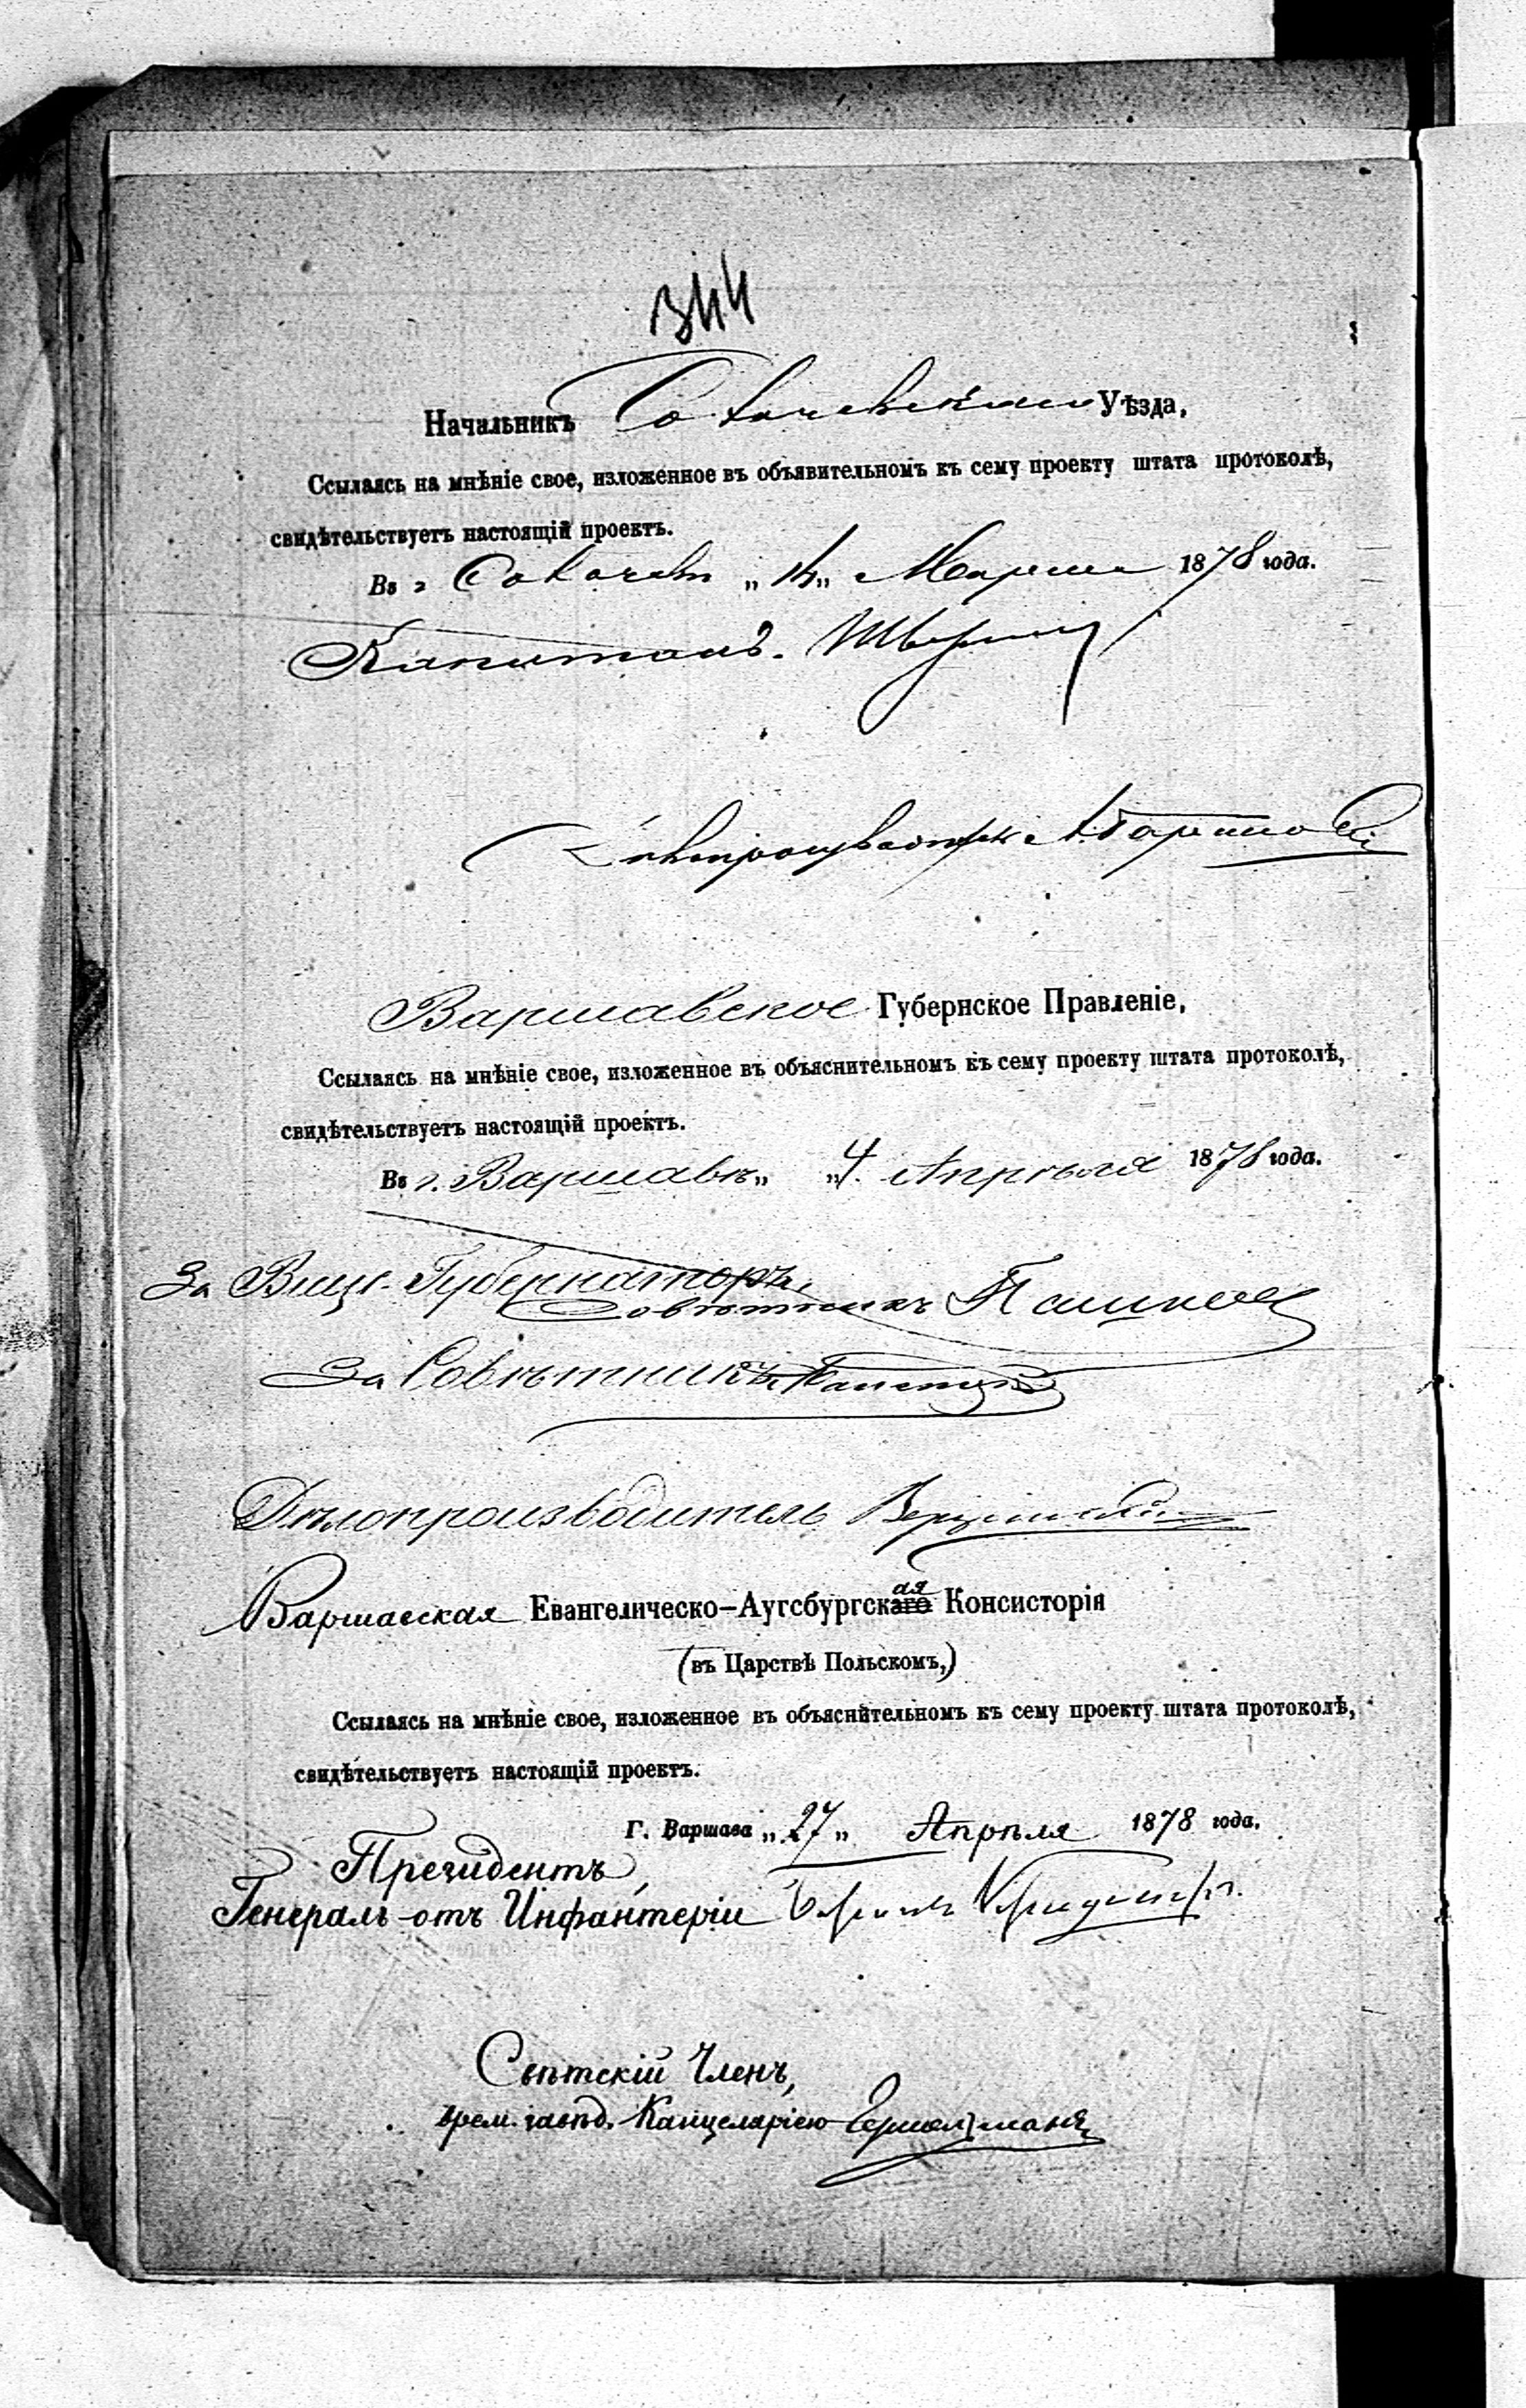 344
Начальникъ Сохачевскаго Уѣзда,
Ссылаясь на мнѣніе свое, изложенное въ объявительномъ къ сему проекту штата протоколѣ,
свидѣтельствуетъ настоящій проектъ.
Въ г Сохачевѣ „14„ Марта 1878 года.
Капитанъ
Варшавское Губернское Правленіе,
Ссылаясь на мнѣніе свое, изложенное въ объяснительномъ къ сему проекту штата протоколѣ,
свидѣтельствуетъ настоящій проектъ.
Въ г. Варшавѣ„ „4. Апрѣля 1878 года.
За Вице-Губернатора,
Совѣтникъ
За Совѣтника
Дѣлопроизводитель
Варшавская Евангелическо-Аугсбургская Консисторія
(въ Царствѣ Польскомъ,)
Ссылаясь на мнѣніе свое, изложенное въ объяснительномъ къ сему проекту штата протоколѣ,
свидѣтельствуетъ настоящій проектъ.
Г. Варшава „27„ Апрѣля 1878 года.
Президентъ,
Генералъ-отъ Инфантеріи Баронъ
Свѣтскій Членъ,
врем. завѣд. Канцеляріею